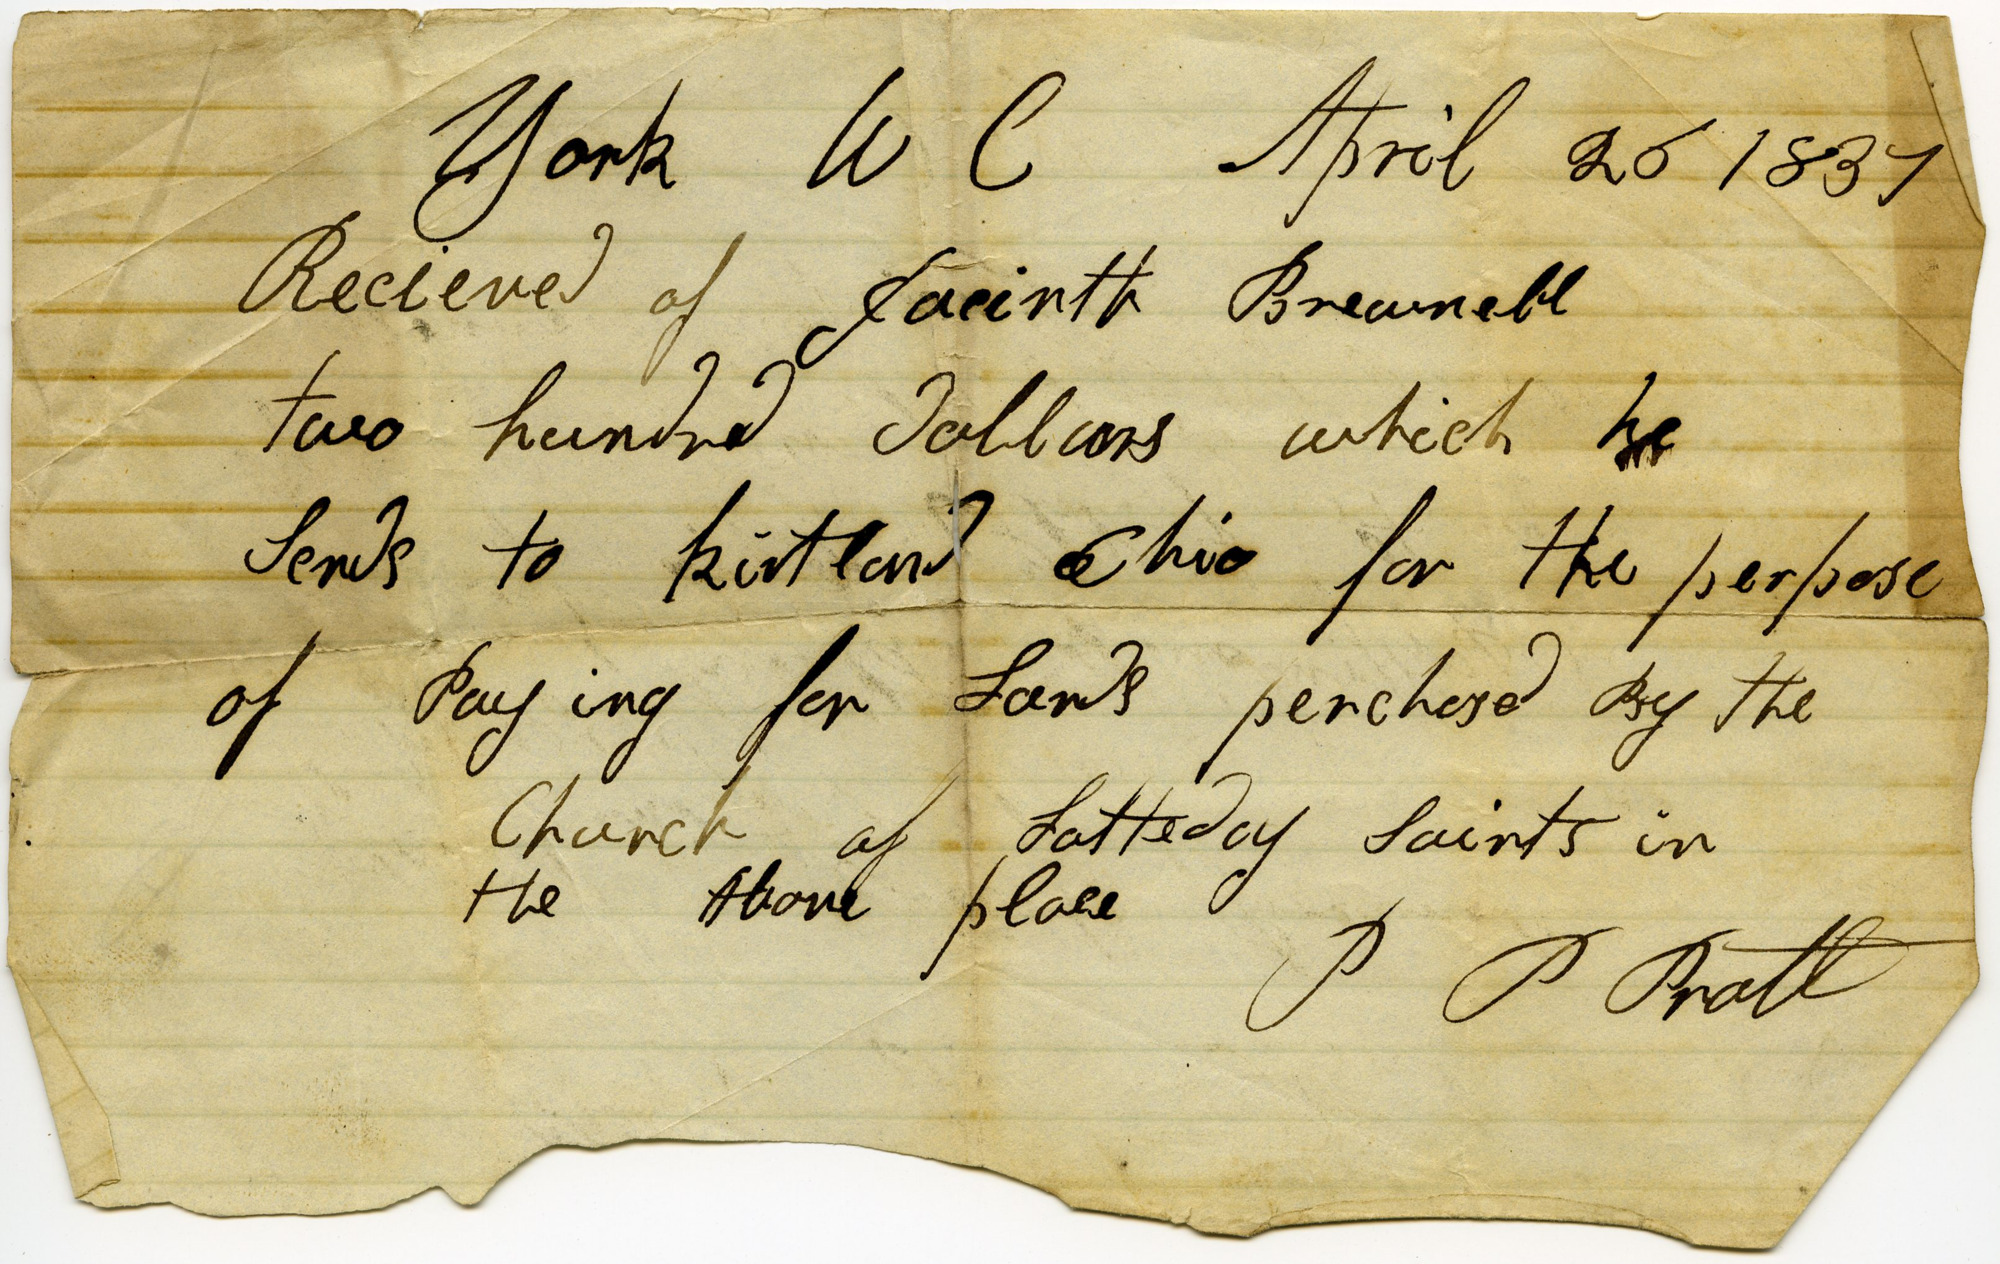 York U C April 26 1837
Recieved of Jacinth Brewnell
two hundred dollars which he
Sends to kirtland Ohio for the perpose
of Paying for Lands perchased By the
Church of Latteday Saints in
the Above place
P P Pratt